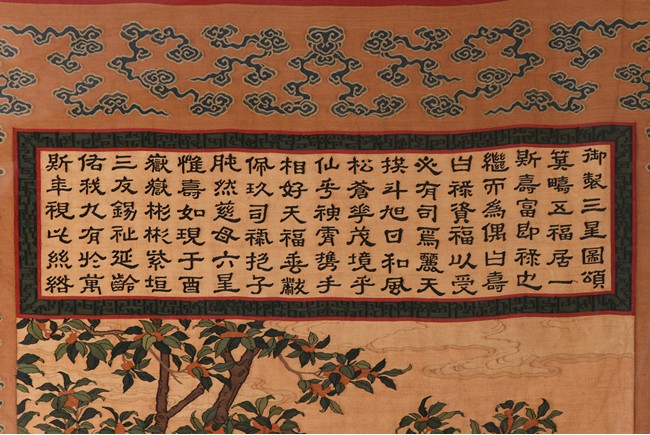 御製三星圖頌
箕疇五福居一
斯壽富即祿也
繼而為偶曰壽
曰祿資福以受
必有司焉麗天
揆斗旭日和風
松蒼華茂境乎
仙乎神霄攜手
相好天福垂黻
佩玖司祿抱子
肫然慈母六星
惟壽如現于酉
嶽嶽彬彬紫垣
三友錫祉延齡
佑我九有於萬
斯年視此絲綹